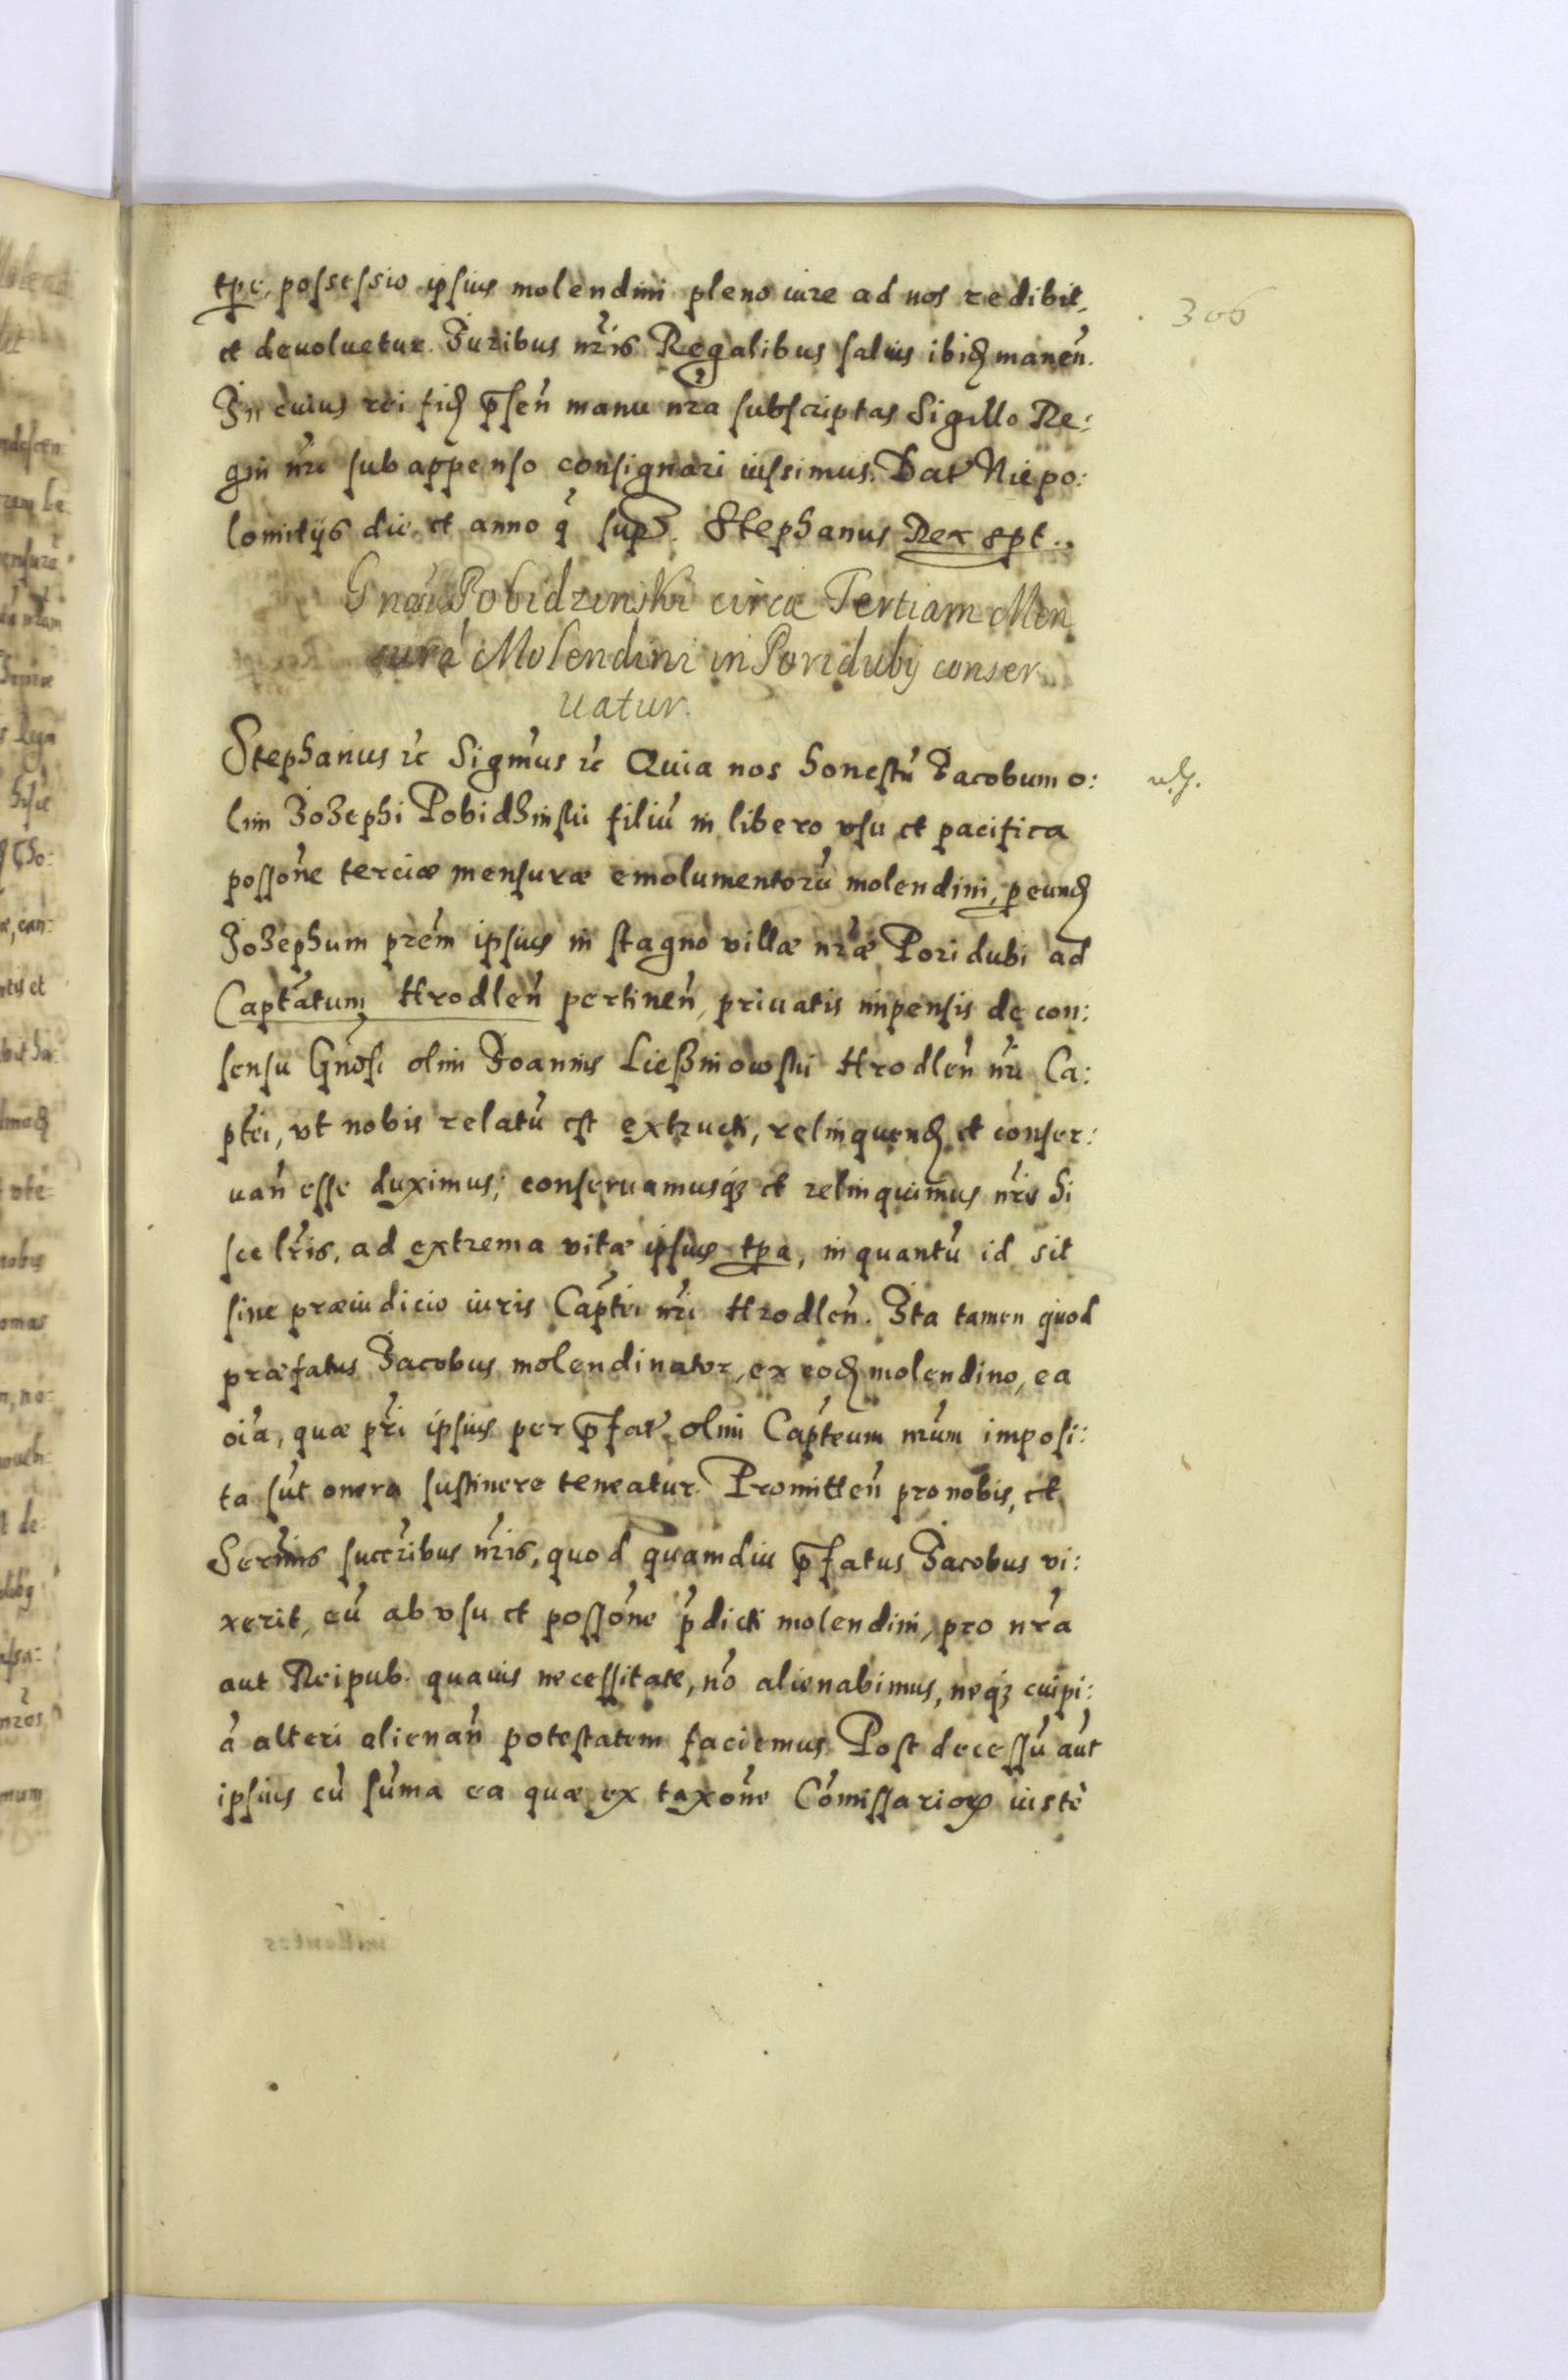 tpe, possessio ipsius molendini pleno iure ad nos redibit,
306
et devoluetur. Iuribus nr̃is Regalibus salvis ibid manen̄.
In cuius rei fid p̄sen̄ manu nr̃a subscriptas Sigillo Re:
gni nr̃i sub appenso consignari iussimus. Dat Niepo:
lomitijs die et anno q̄ sup. Stephanus Rex spt..
Pobidzinski circa Tertiam Men
surā Molendini in Poridubij conser
uatur.
Stephanus ꝛc Sigm̄us ꝛc Quia nos honestū Iacobum o:
lim Iozephi Pobidzinskii filiū in libero vsu et pacifica
possōne terciæ mensuræ emolumentorū molendini, p eund
Iozephum prēm ipsius in stagno villæ nr̃æ Poridubi ad
Captātum Hrodlen̄ pertinen̄, privatis impensis de con:
sensu Gn̄osi olim Ioannis Lieszniowskii Hrodlen̄ nr̃i Ca:
ptēi, vt nobis relatū est extructi, relinquend et conser:
uan̄ esse duximus; conseruamusq́ et relinquimus nr̃is hi
sce lr̃is, ad extrema vitæ ipsius tpa, in quantū id sit
sine præiudicio iuris Captēi nr̃i Hrodlen̄. Ita tamen quod
præfatus Iacobus molendinator, ex eod molendino, ea
oīa, quæ pr̃i ipsius per p̄fat olim Captēum nr̃um imposi:
ta sūt onera sustinere teneatur. Promitten̄ pro nobis, et
Serm̄is succr̄ibus nr̃is, quod quamdiu p̄fatus Iacobus vi:
xerit, eū ab vsu et possōne p̄dicti molendini, pro nr̃a
aut Reipub. quauis necessitate, nō alienabimus, neq́ cuipi:
ā alteri alienan̄ potestatem faciemus. Post decessū aūt
ipsius cū sūma ea quæ ex taxōne Cōmissarioꝝ iustè